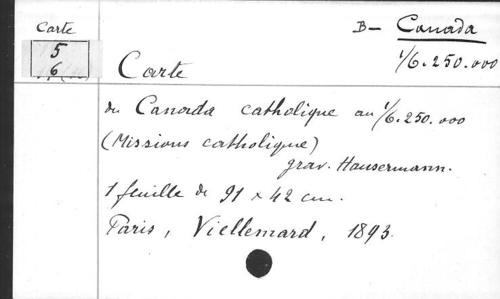 Carte
5
6
B- Canada
1/6.250.000
Carte
du Canada catholique au 1/6.250.000
(Missions catholique)
grav. Hausermann.
1 feuille de 91 x 42 cm.
Paris, Viellemard, 1893.